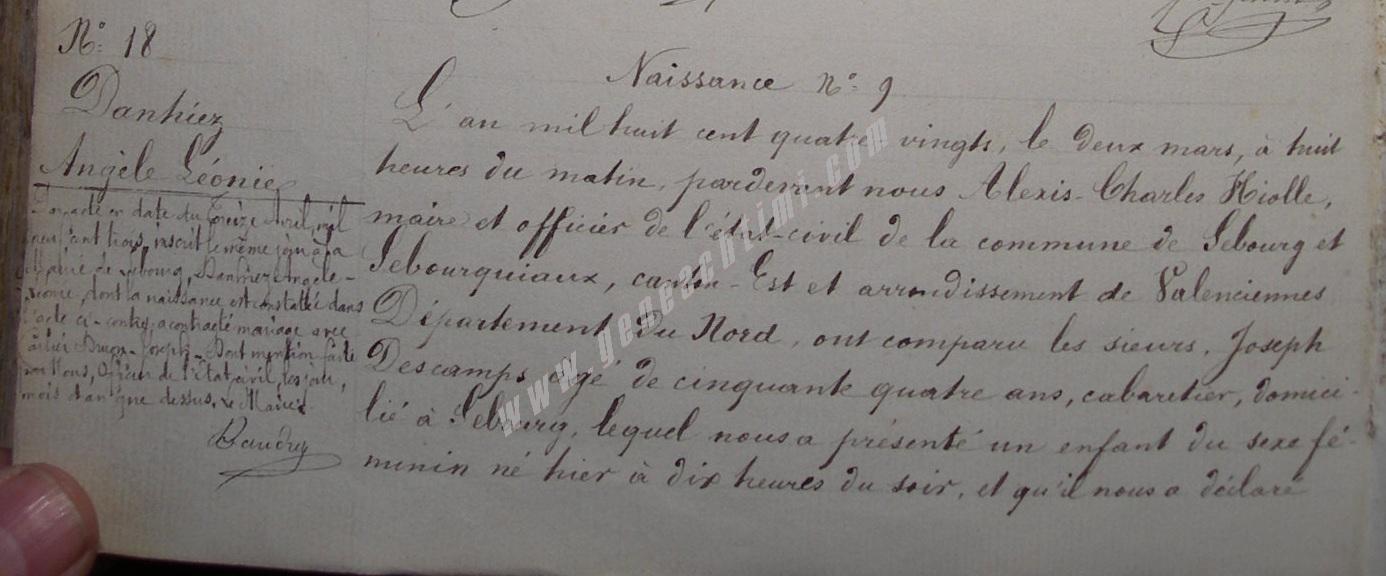 N° 18
Danhiez
Angèle Léonie
Par acte en date du treize Avril, mil
neuf cent trois, inscrit le même jour à la
Mairie de Sebourg, Danhiez Angèle-
Léonie, dont la naissance est constatée dans
l'acte ci-contre, a contracté mariage avec
Joseph - Dont mention faite
par Nous, Officier de l'Etat civil, les jour,
mois et an que dessus. Le Maire.
Baudry
Naissance N° 9
L'an mil huit cent quatre vingts, le deux mars, à huit
heures du matin, pardevant nous Alexis-Charles Hiolle,
maire et officier de l'état-civil de la commune de Sebourg et
Sebourquiaux, canton-Est et arrondissement de Valenciennes
Département du Nord, ont comparu les sieurs, Joseph
Descamps agé de cinquante quatre ans, cabaretier, domici-
lié à Sebourg, lequel nous a présenté un enfant du sexe fé-
minin né hier à dix heures du soir, et qu'il nous a déclaré
www.geneachtimi.com